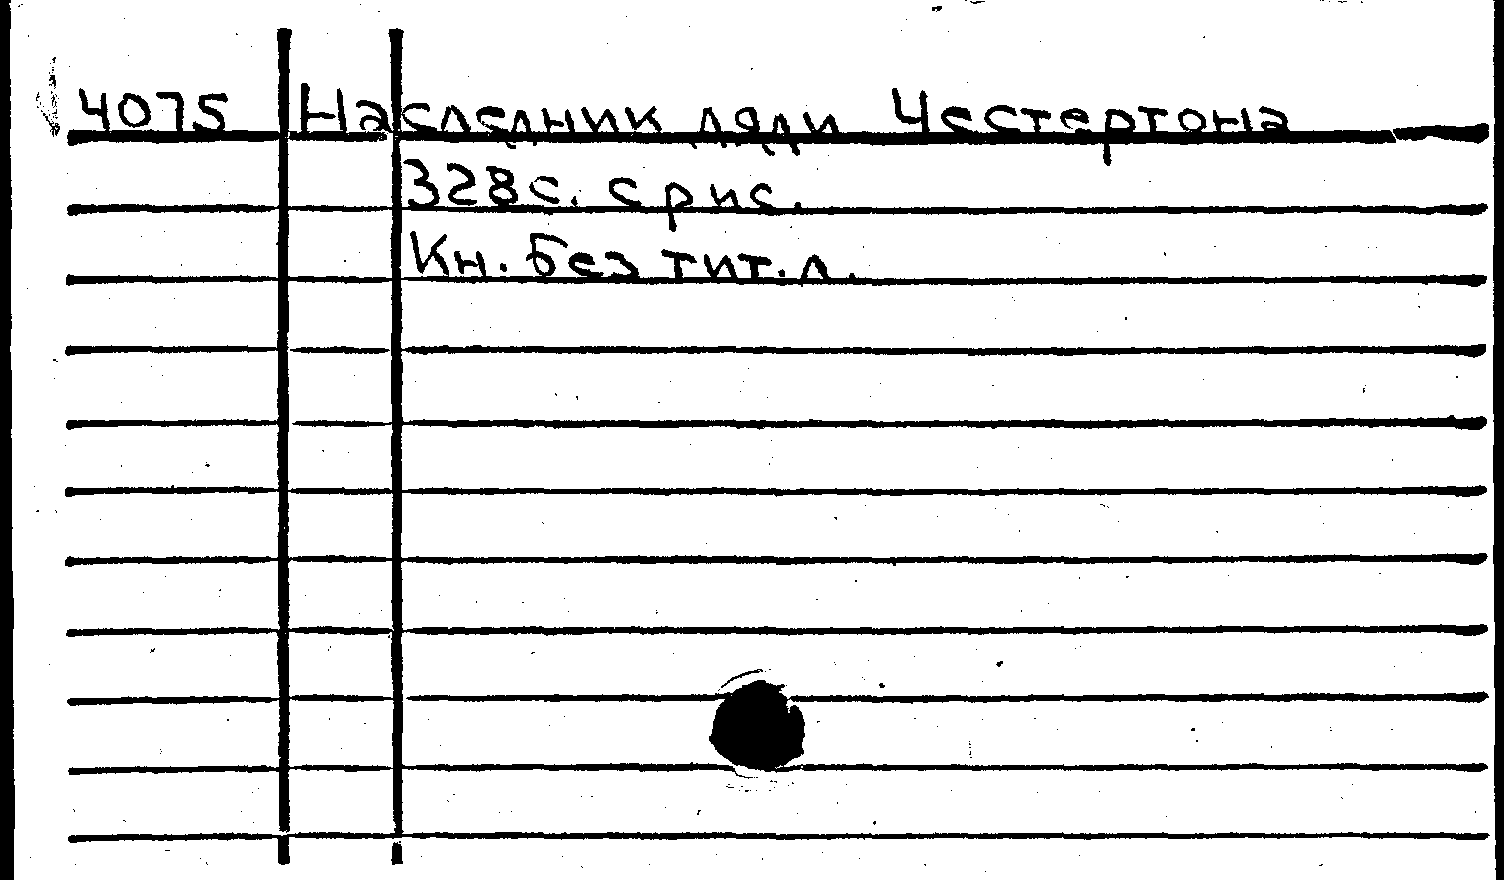 4075 Наследник дяди Честертона
328с. с рис.
Кн. без тит. л.